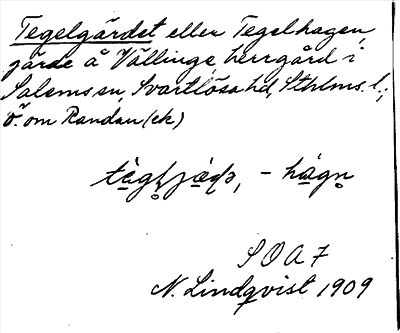 Tegelgärdet eller Tegelhagen,
gärde å Vällinge herrgård i
Salems sn, Svartlösa hd, Sthlms. l.;
ö. om Randan (ek)
SOA 7
N. Lindqvist 1909